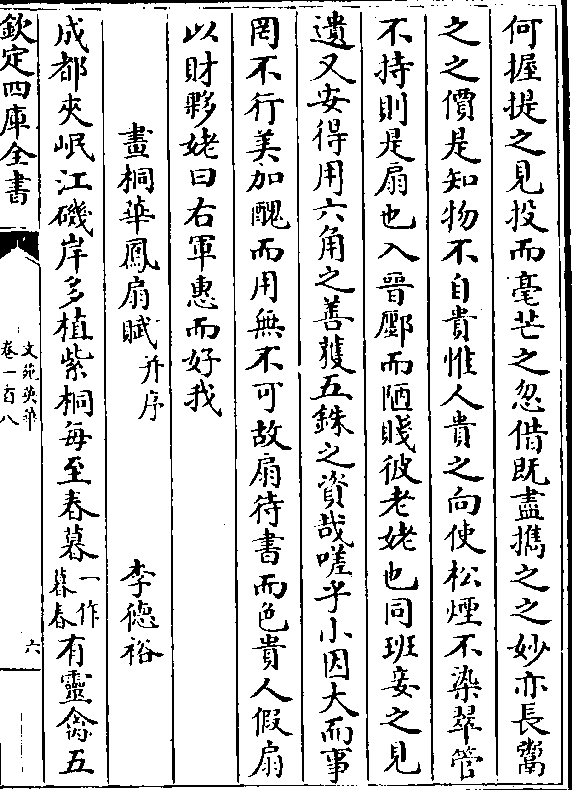 何握提之見投而毫芒之忽偕既盡擕之之妙亦長鬻
之之價是知物不自貴惟人貴之向使松煙不染翠管
不持則是扇也入晉鄽而陋賤彼老姥也同班妾之見
遺又安得用六角之善獲五銖之資哉嗟乎小因大而事
罔不行美加醜而用無不可故扇待書而色貴人假扇
以財夥姥曰右軍惠而好我
畫桐華鳳扇賦并序 李德裕
成都夾岷江磯岸多植紫桐每至春暮一作暮春有靈禽五
欽定四庫全書
文苑英華
卷一百八
六